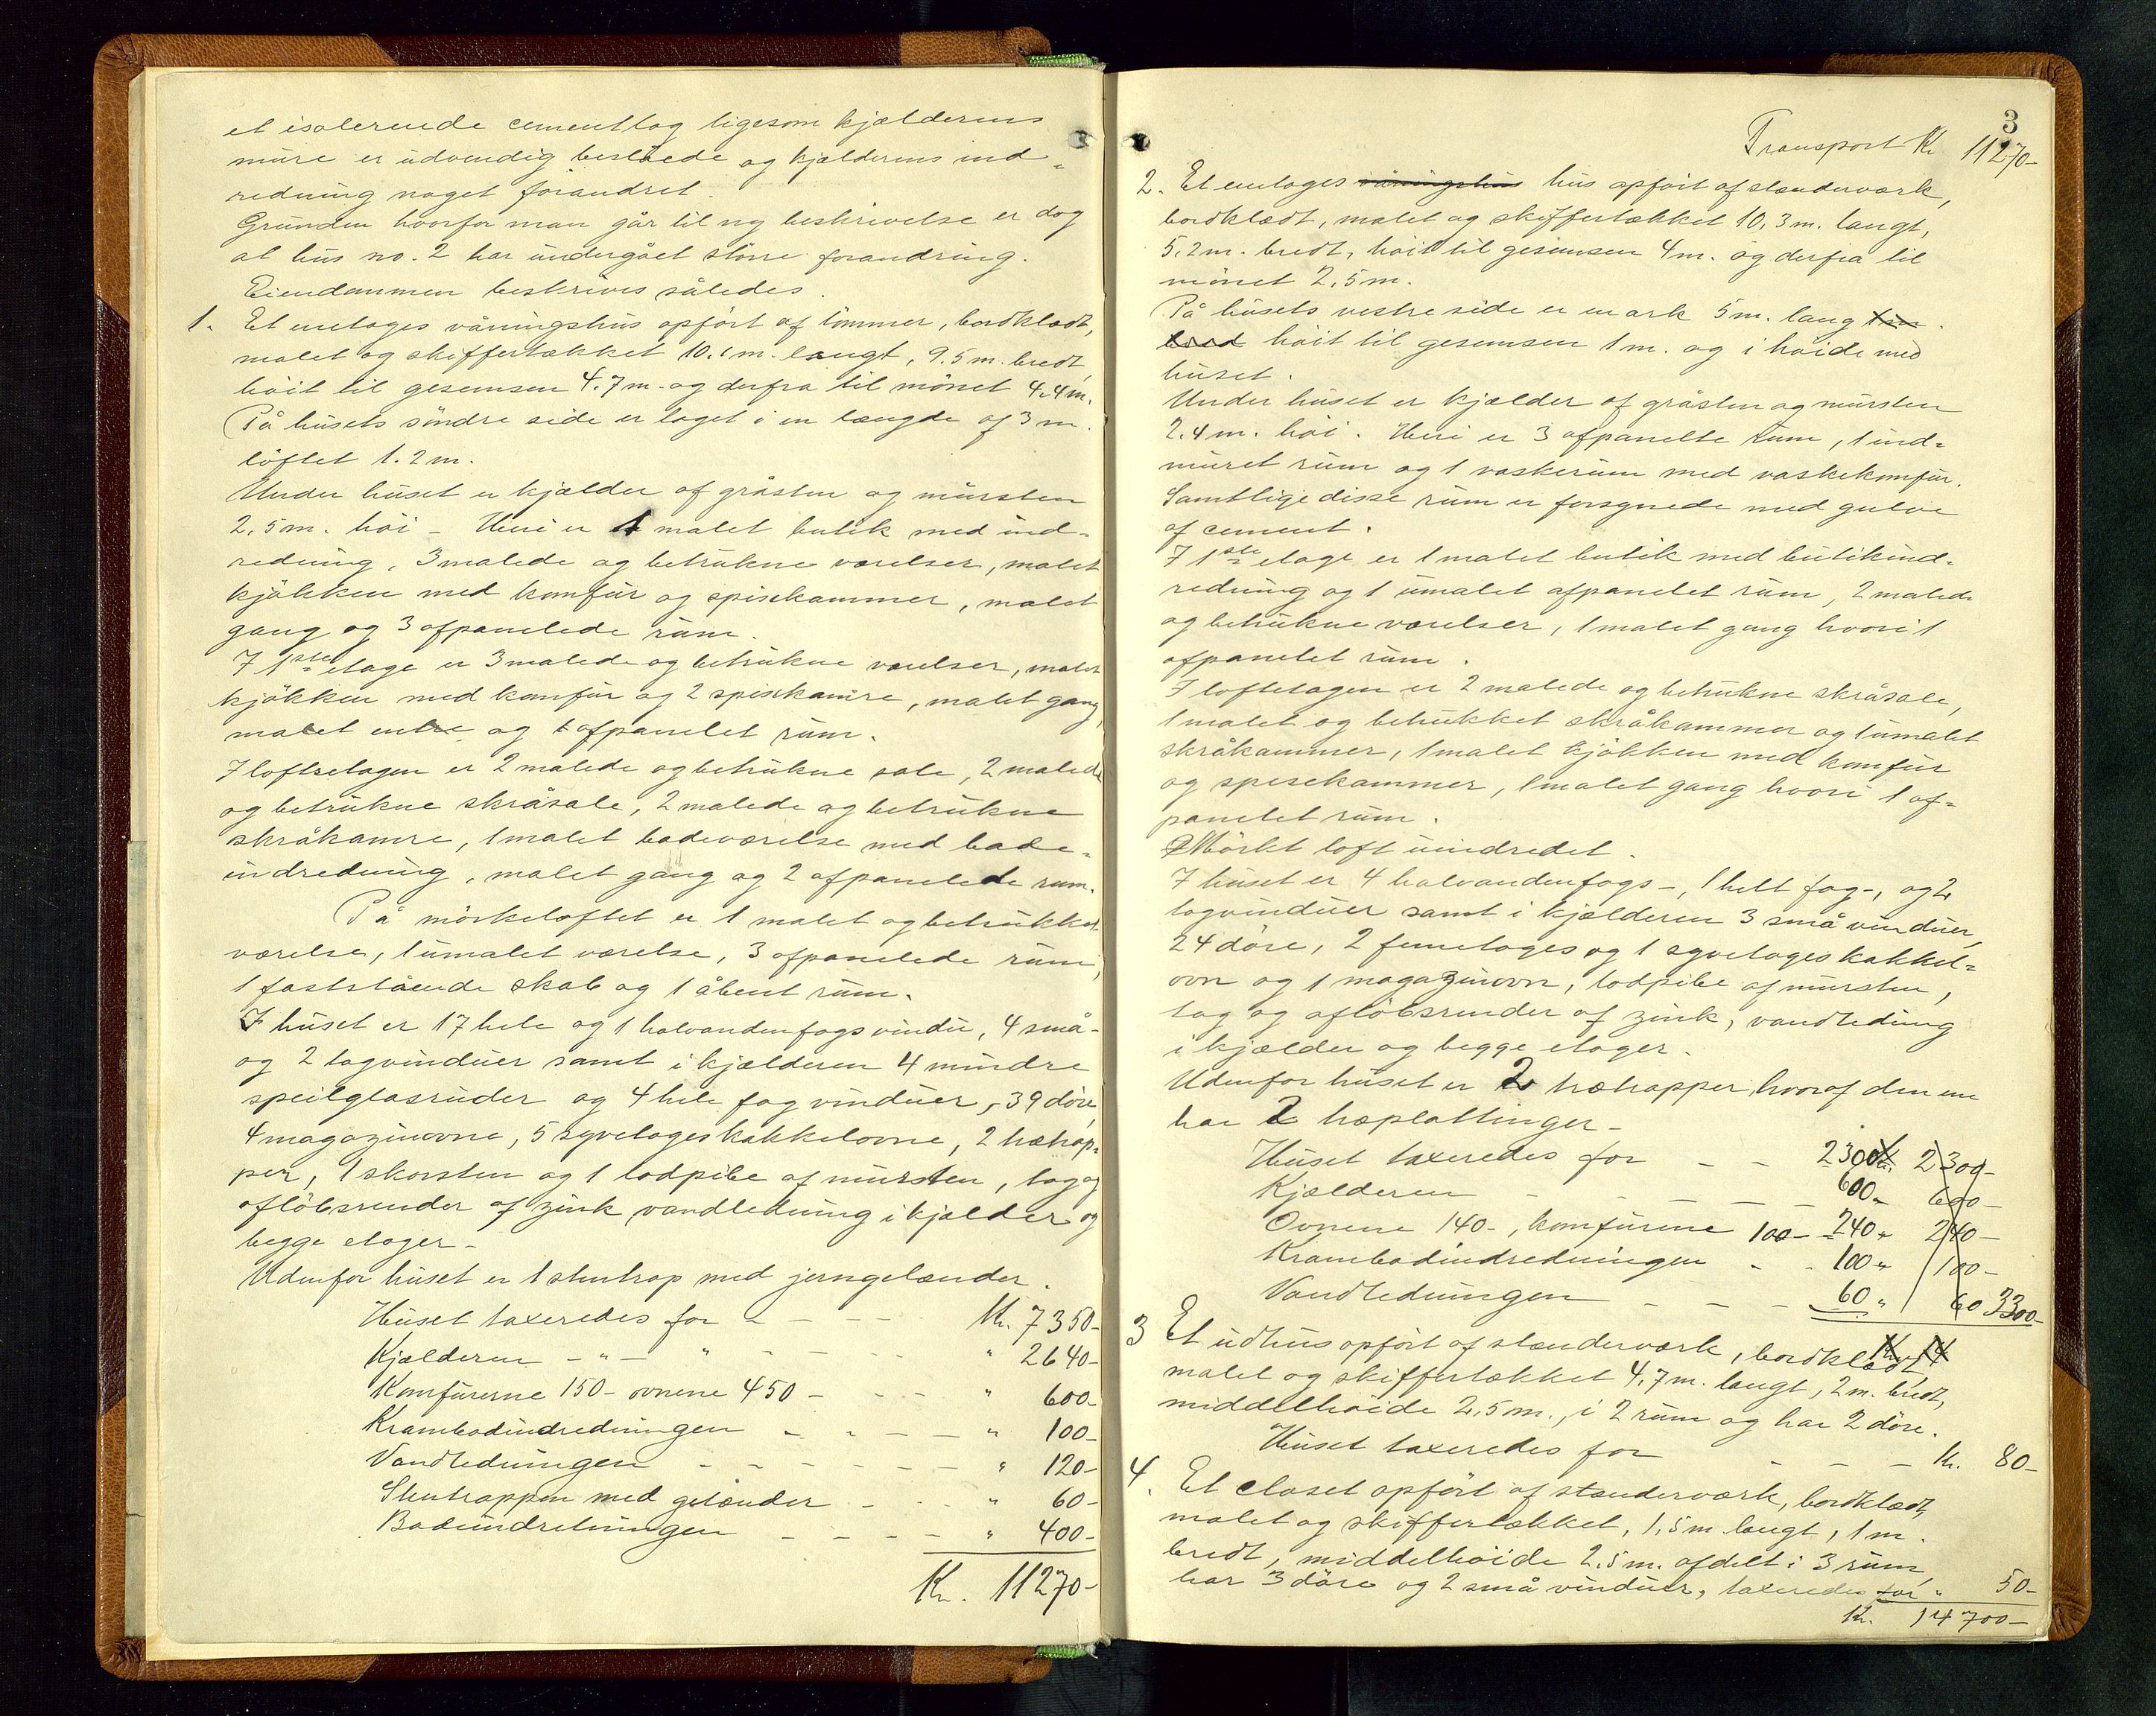 et isolerende cementlag ligesom kjælderens
mure er udvendig beslåede og kjælderens ind=
redning noget forandret.
Grunden hvorfor man går til ny beskrivelse er dog
at hus no. 2 har undergået större forandring.
Eiendommen beskrives således.
1. Et enetages våningshus opfört af tömmer, bordklædt,
malet og skiffertækket 10.1 m. langt, 9.5 m. bredt,
höit til gesemsen 4.7 m. og derfra til mönet 4.4 m.
På husets söndre side er taget i en længde af 3 m.
löftet 1.2 m.
Under huset er kjælder af gråsten og mursten
2.5 m. höi - Heri er 1 malet butik med ind=
redning, 3 malede og betrukne værelser, malet
kjökken med komfur og spisekammer, malet
gang og 3 afpanelede rum.
I 1ste etage er 3 malede og betrukne værelser, malet
kjökken med komfur og 2 spisekamre, malet gang,
malet entre og 1 afpanelet rum.
I loftsetagen er 2 malede og betrukne sale, 2 malede
og betrukne skråsale, 2 malede og betrukne
skråkamre, 1 malet badeværelse med bade=
indredning, malet gang og 2 afpanelede rum.
På mörkeloftet er 1 malet og betrukket
værelse, 1 umalet værelse, 3 afpanelede rum,
1 faststående skab og 1 åbent rum.
I huset er 17 hele og 1 halvandenfags vindu, 4 små-
og 2 tagvinduer samt i kjælderen 4 mindre
speilglasruder og 4 hele fag vinduer, 39 döre,
4 magazinovne, 5 syvetages kakkelovne, 2 trætrap=
per, 1 skorsten og 1 lodpibe af mursten, tag og
aflöbsrender af zink vandledning i kjælder og
begge etager -
Udenfor huset er 1 stentrap med jerngelænder.
Huset taxeredes for - - - - Kr. 7350-
Kjælderen - " - " - - - - " 2640-
Komfurerne 150- ovnene 450 - - - - " 600-
Krambodindredningen - - - - " 100-
Vandledningen - - - - - - " 120-
Stentrappen med gelænder - - - " 60-
Badeindretningen - - - - " 400-
Kr. 11270-
3
Transport Kr 11270-
2. Et enetages våningshus hus opfört af stænderværk,
bordklædt, malet og skiffertækket 10,3 m. langt,
5,2 m. bredt, höit til gesimsen 4 m. og derfra til
mönet 2,5 m.
På husets vestre side er en ark 5 m. lang 1 m.
bred höit til gesemsen 1 m. og i höide med
huset.
Under huset er kjælder af gråsten og mursten
2.4 m. höi. Heri er 3 afpanelte rum, 1 ind=
muret rum og 1 vaskerum med vaskekomfur.
Samtlige disse rum er forsynede med gulve
af cement.
I 1ste etage er 1 malet butik med butikind=
redning og 1 umalet afpanelet rum, 2 malede
og betrukne værelser, 1 malet gang hvori 1
afpanelet rum.
I loftetagen er 2 malede og betrukne skråsale,
1 malet og betrukket skråkammer og 1 umalet
skråkammer, 1 malet kjökken med komfur
og spisekammer, 1 malet gang hvori 1 af=
panelet rum.
Mörkt loft uindredet.
I huset er 4 halvandenfags-, 1 helt fag-, og 2
tagvinduer samt i kjælderen 3 små vinduer,
24 döre, 2 femetages og 1 syvetages kakkel=
ovn og 1 magazinovn, lodpibe af mursten,
tag og aflöbsrender af zink, vandledning
i kjælder og begge etager.
Udenfor huset er 2 trætrapper hvoraf den ene
har 2 træplattinger -
Huset taxeredes for - - 2300 Kr. 2300-
Kjælderen - - - - - 600- 600-
Ovnene 140-, komfurene 100- 240 " 240-
Krambodindredningen - - 100 " 100-
Vandledningen - - - 60 " 60 3300-
3 Et udhus opfört af stænderværk, bordklædt,
malet og skiffertækket 4,7 m. langt, 2 m. bredt,
middelhöide 2,5 m., i 2 rum og har 2 döre.
Huset taxeredes for - - - Kr. 80-
4. Et closet opfört af stænderværk, bordklædt,
malet og skiffertækket, 1,5 m. langt, 1 m.
bredt, middelhöide 2.5 m. afdelt i 3 rum,
har 3 döre og 2 små vinduer, taxeredes for " 50-
Kr. 14700-